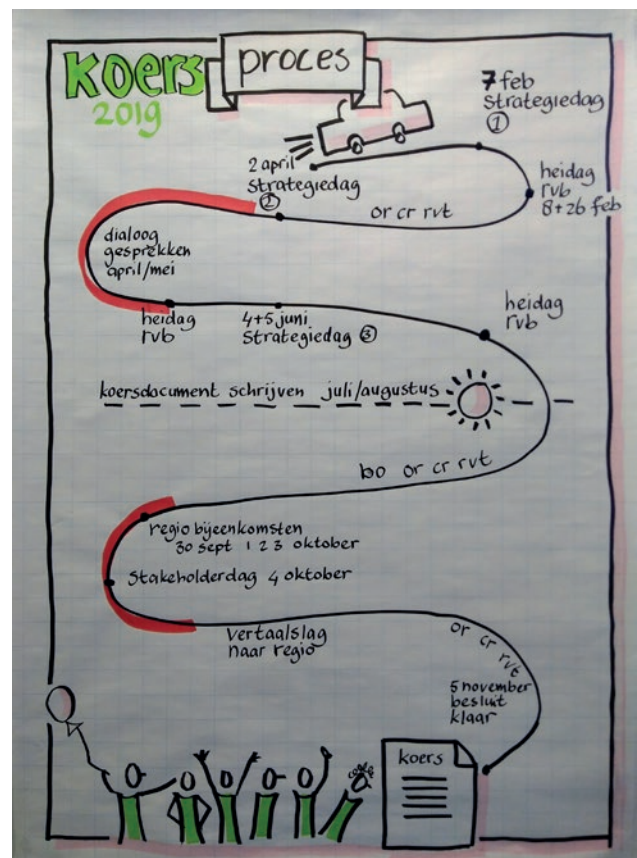 koers
2019
proces
7 feb
strategiedag
①
heidag
rvb
8+26 feb
2 april
strategiedag
②
or cr rvt
dialoog
gesprekken
april/mei
heidag
rvb
4+5 juni
strategiedag ③
heidag
rvb
koersdocument schrijven juli/augustus
bo or cr rvt
regio bijeenkomsten
30 sept 1 2 3 oktober
stakeholderdag 4 oktober
vertaalslag
naar regio
or cr rvt
5 november
besluit
klaar
koers